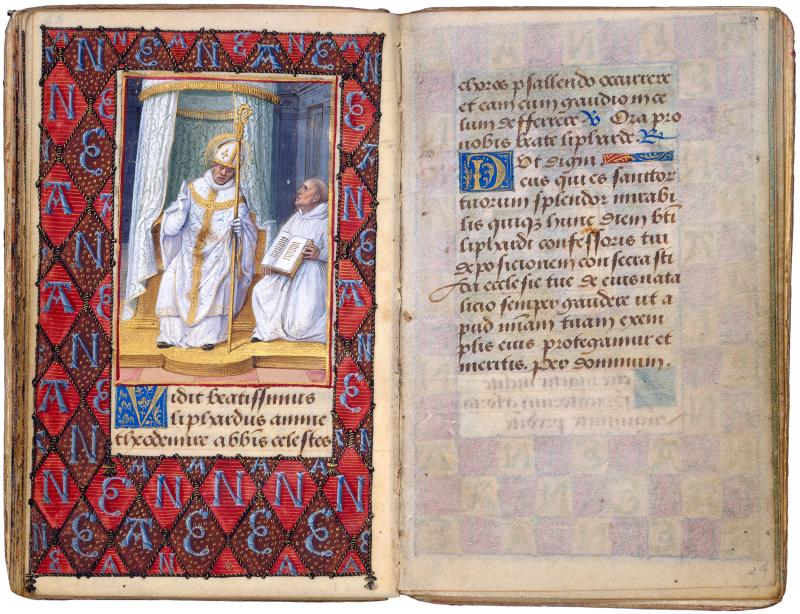 Vidit beatissimus
liphardus anime
theodemire abbis celestes
24
choros psallendo occurrere
et eam cum gaudio in ce
lum defferere V Ora pro
nobis beate lipharde. R
Vt digni
Deus qui es sanctor
tuorum splendor mirabi
lis quiqz hunc diem bti
liphardi confessoris tui
deposicionem consecrasti
da ecclesie tue de eius nata
licio semper gaudere ut a
pud miam tuam exem
plis eius protegamur et
meritis. Per dominum.
24